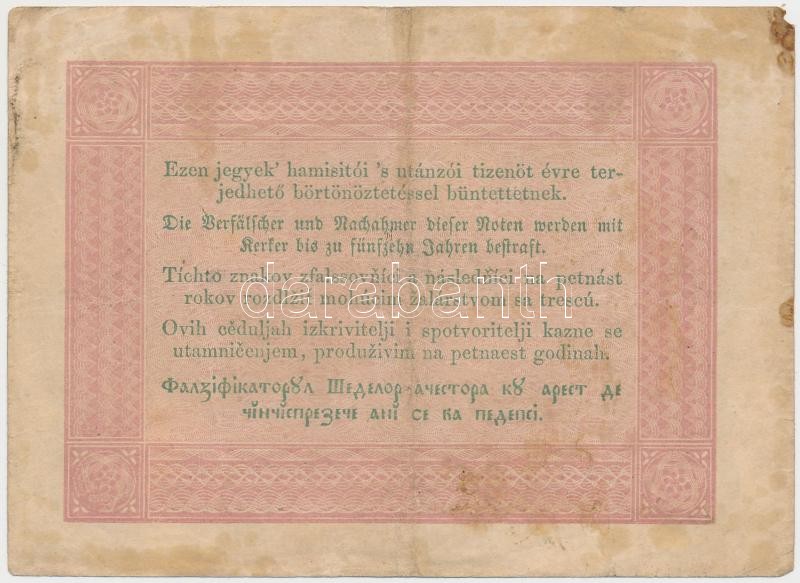 Ezen jegyek' hamisitói 's utánzói tizenöt évre ter-
jedhető börtönöztetéssel büntettetnek.
Die Verfälscher und Nachahmer dieser Noten werden mit
Kerker bis zu fünfzehn Jahren bestraft.
Tíchto znakov zfalszovňíci a následňíci na petnást
rokov rozdlžiť mohúcim žalárstvom sa trescú.
darabanth
Ovih cěduljah izkrivitelji i spotvoritelji kazne se
utamničenjem, produživim na petnaest godinah.
Фалꙁіфікаторꙋл Шеделор ачестора кꙋ арест де
чінчіспреꙁече ані се ва педепсі.